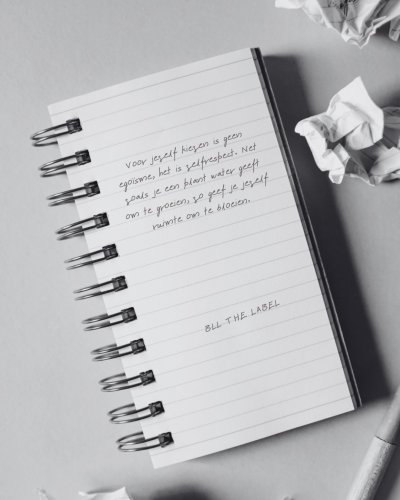 Voor jezelf kiezen is geen
egoïsme, het is zelfrespect. Net
zoals je een plant water geeft
om te groeien, zo geef je jezelf
ruimte om te bloeien.
BLL THE LABEL